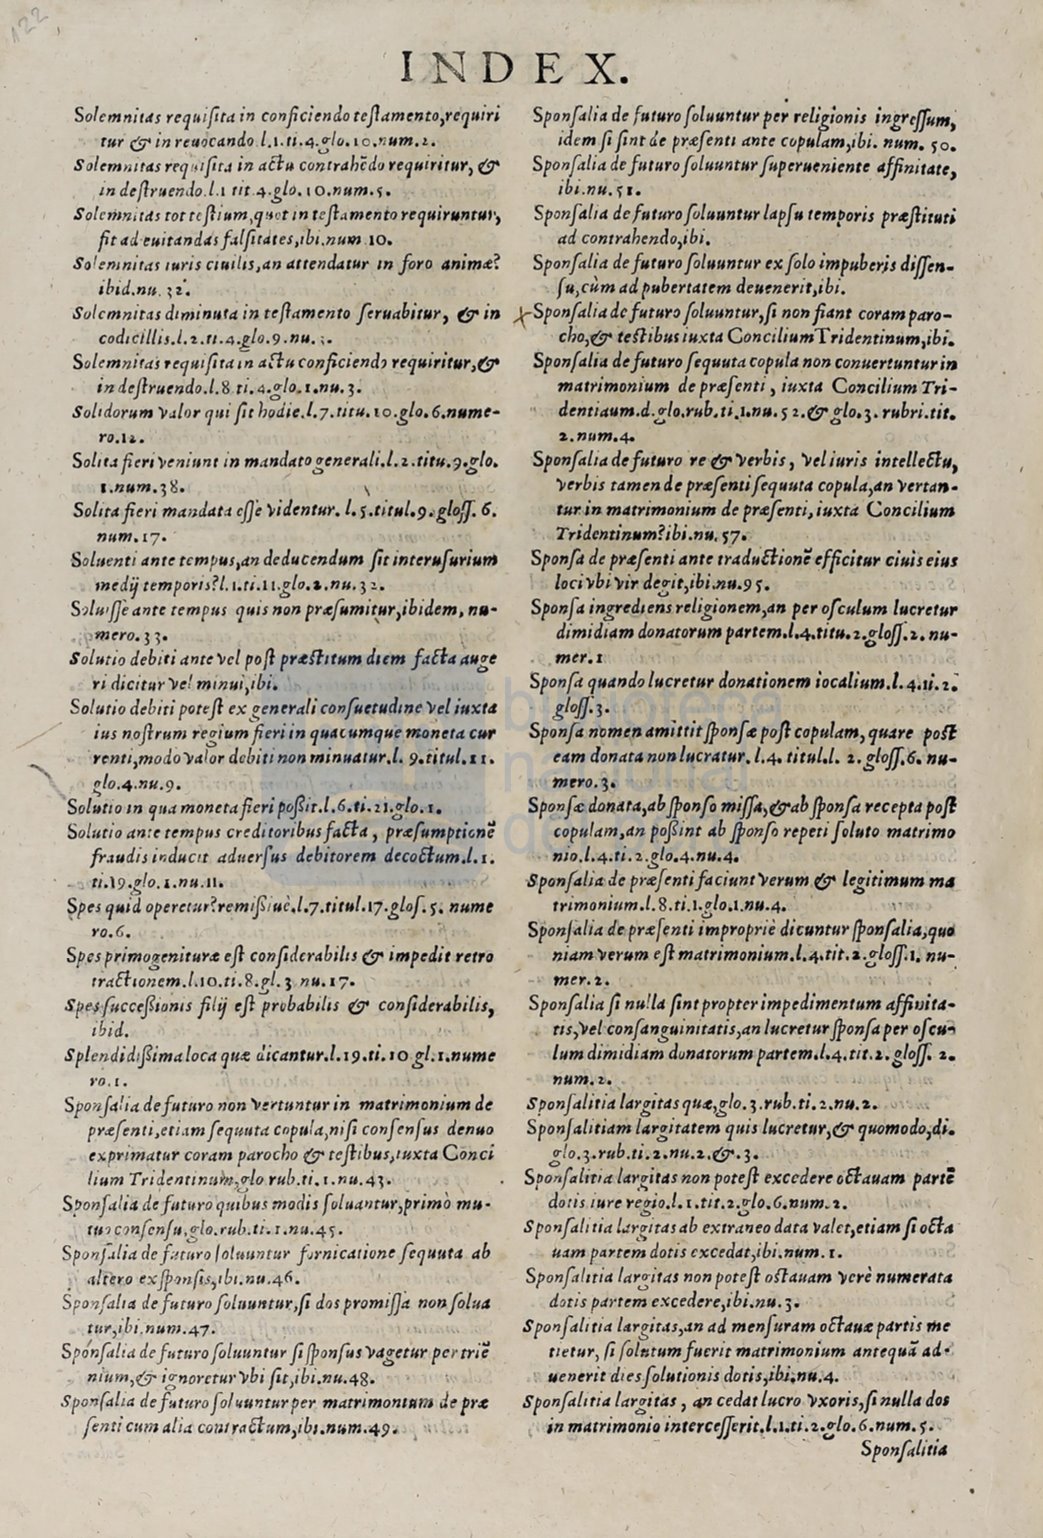 122
INDEX.
Solemnitas requiſita in conficiendo teſtamento, requiri
tur & in reuocando l.1.ti.4.glo.10.num.2.
Solemnitas requiſita in actu contrahẽdo requiritur, &
in deſtruendo.l.1 tit 4.glo.10.num.5.
Solemnitas tot teſtium, quot in teſtamento requiruntur,
fit ad euitandas falſitates, ibi.num 10.
Solemnitas iuris ciuilis, an attendatur in foro animæ?
ibid.nu. 32.
Solemnitas diminuta in teſtamento ſeruabitur, & in
codicillis.l.2.ti.4.glo.9.nu.
Solemnitas requiſita in actu conficiendo requiritur, &
in deſtruendo.l.8 ti.4.glo.1.nu.3.
Solidorum valor qui ſit hodie.l.7.titu.10.glo.6.nume-
ro.12.
Solita fieri veniunt in mandato generali.l.2.titu.9.glo.
1.num.38.
Solita fieri mandata eſſe videntur. l.5.titul.9.gloſſ. 6.
num.17.
Soluenti ante tempus, an deducendum ſit interuſurium
medij temporis?l.1.ti.11.glo.2.nu.32.
Soluiſſe ante tempus quis non præſumitur, ibidem, nu-
mero.33.
Solutio debiti ante vel poſt præſtitum diem facta auge
ri dicitur vel minui, ibi.
Solutio debiti poteſt ex generali conſuetudine vel iuxta
ius noſtrum regium fieri in quacumque moneta cur
renti, modo valor debiti non minuatur.l. 9.titul.11.
glo.4.nu.9.
Solutio in qua moneta fieri poßit.l.6.ti.21.glo.1.
Solutio ante tempus creditoribus facta, præſumptionẽ
fraudis inducit aduerſus debitorem decoctum.l.1.
ti.19.glo.1.nu.11.
Spes quid operetur?remißiuè.l.7.titul.17.gloſ.5. nume
ro.6.
Spes primogenituræ eſt conſiderabilis & impedit retro
tractionem.l.10.ti.8.gl.3 nu.17.
Spes ſucceßionis filij eſt probabilis & conſiderabilis,
ibid.
Splendidißima loca quæ dicantur.l.19.ti.10 gl.1.nume
ro.1.
Sponſalia de futuro non vertuntur in matrimonium de
præſenti, etiam ſequuta copula, niſi conſenſus denuo
exprimatur coram parocho & teſtibus, iuxta Conci
lium Tridentinum, glo rub.ti.1.nu.43.
Sponſalia de futuro quibus modis ſoluantur, primò mu-
tuo conſenſu, glo.rub.ti.1.nu.45.
Sponſalia de futuro ſoluuntur fornicatione ſequuta ab
altero ex ſponſis, ibi.nu.46.
Sponſalia de futuro ſoluuntur, ſi dos promiſſa non ſolua
tur, ibi.num.47.
Sponſalia de futuro ſoluuntur ſi ſponſus vagetur per triẽ
nium, & ignoretur vbi ſit, ibi.nu.48.
Sponſalia de futuro ſoluuntur per matrimonium de præ
ſenti cum alia contractum, ibi.num.49.
Sponſalia de futuro ſoluuntur per religionis ingreſſum,
idem ſi ſint de præſenti ante copulam, ibi. num. 50.
Sponſalia de futuro ſoluuntur ſuperueniente affinitate,
ibi.nu.51.
Sponſalia de futuro ſoluuntur lapſu temporis præſtituti
ad contrahendo, ibi.
Sponſalia de futuro ſoluuntur ex ſolo impuberis diſſen-
ſu, cùm ad pubertatem deuenerit, ibi.
Sponſalia de futuro ſoluuntur, ſi non fiant coram paro-
cho, & teſtibus iuxta Concilium Tridentinum, ibi.
Sponſalia de futuro ſequuta copula non conuertuntur in
matrimonium de præſenti, iuxta Concilium Tri-
dentiaum.d.glo.rub.ti.1.nu.52.& glo.3. rubri.tit.
2.num.4.
Sponſalia de futuro re & verbis, vel iuris intellectu,
verbis tamen de præſenti ſequuta copula, an vertan-
tur in matrimonium de præſenti, iuxta Concilium
Tridentinum?ibi.nu.57.
Sponſa de præſenti ante traductionẽ efficitur ciuis eius
loci vbi vir degit, ibi.nu.95.
Sponſa ingrediens religionem, an per oſculum lucretur
dimidiam donatorum partem.l.4.titu.2.gloſſ.2.nu-
mer.1
Sponſa quando lucretur donationem iocalium.l.4.ti.2.
gloſſ.3.
Sponſa nomen amittit ſponſæ poſt copulam, quare poſt
eam donata non lucratur. l.4. titul.l. 2.gloſſ.6. nu-
mero.3.
Sponſæ donata, ab ſponſo miſſa, & ab ſponſa recepta poſt
copulam, an poßint ab ſponſo repeti ſoluto matrimo
nio.l.4.ti.2.glo.4.nu.4.
Sponſalia de præſenti faciunt verum & legitimum ma
trimonium.l.8.ti.1.glo.1.nu.4.
Sponſalia de præſenti impropriè dicuntur ſponſalia, quo
niam verum eſt matrimonium.l.4.tit.2.gloſſ.1. nu-
mer.2.
Sponſalia ſi nulla ſint propter impedimentum affinita-
tis, vel conſanguinitatis, an lucretur ſponſa per oſcu-
lum dimidiam donatorum partem.l.4.tit.2.gloſſ. 2.
num.2.
Sponſalitia largitas quæ, glo.3.rub.ti.2.nu.2.
Sponſalitiam largitatem quis lucretur, & quomodo, di.
glo.3.rub.ti.2.nu.2.&.3.
Sponſalitia largitas non poteſt excedere octauam partẽ
dotis iure regio.l.1.tit.2.glo.6.num.2.
Sponſalitia largitas ab extraneo data valet, etiam ſi octa
uam partem dotis excedat, ibi.num.1.
Sponſalitia largitas non poteſt octauam verè numerata
dotis partem excedere, ibi.nu.3.
Sponſalitia largitas, an ad menſuram octauæ partis me
tietur, ſi ſolutum fuerit matrimonium antequã ad-
uenerit dies ſolutionis dotis, ibi.nu.4.
Sponſalitia largitas, an cedat lucro vxoris, ſi nulla dos
in matrimonio interceſſerit.l.1.ti.2.glo.6.num.5.
Sponſalitia